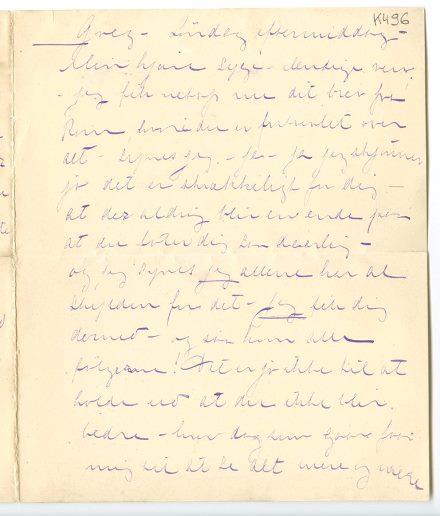 K496
Grez - Lördag eftermiddag -
Min kjære lydige ven,
- jeg fik netop nu dit brev fra
Rom, hvori du er fortvivlet over
alt - synes jeg. - Ja - ja jeg skjønner
jo det er skrækkeligt for dig -
at det aldrig blir en ende paa
at du föler dig saa daarlig -
og jeg synes jeg allene har al
skylden for det - Jeg fik dig
derned - og saa kom alle
følgerne! Det er jo ikke til at
holde ud at du ikke blir
bedre - hver dag som gaar faar
mig til at se alt mere og mere